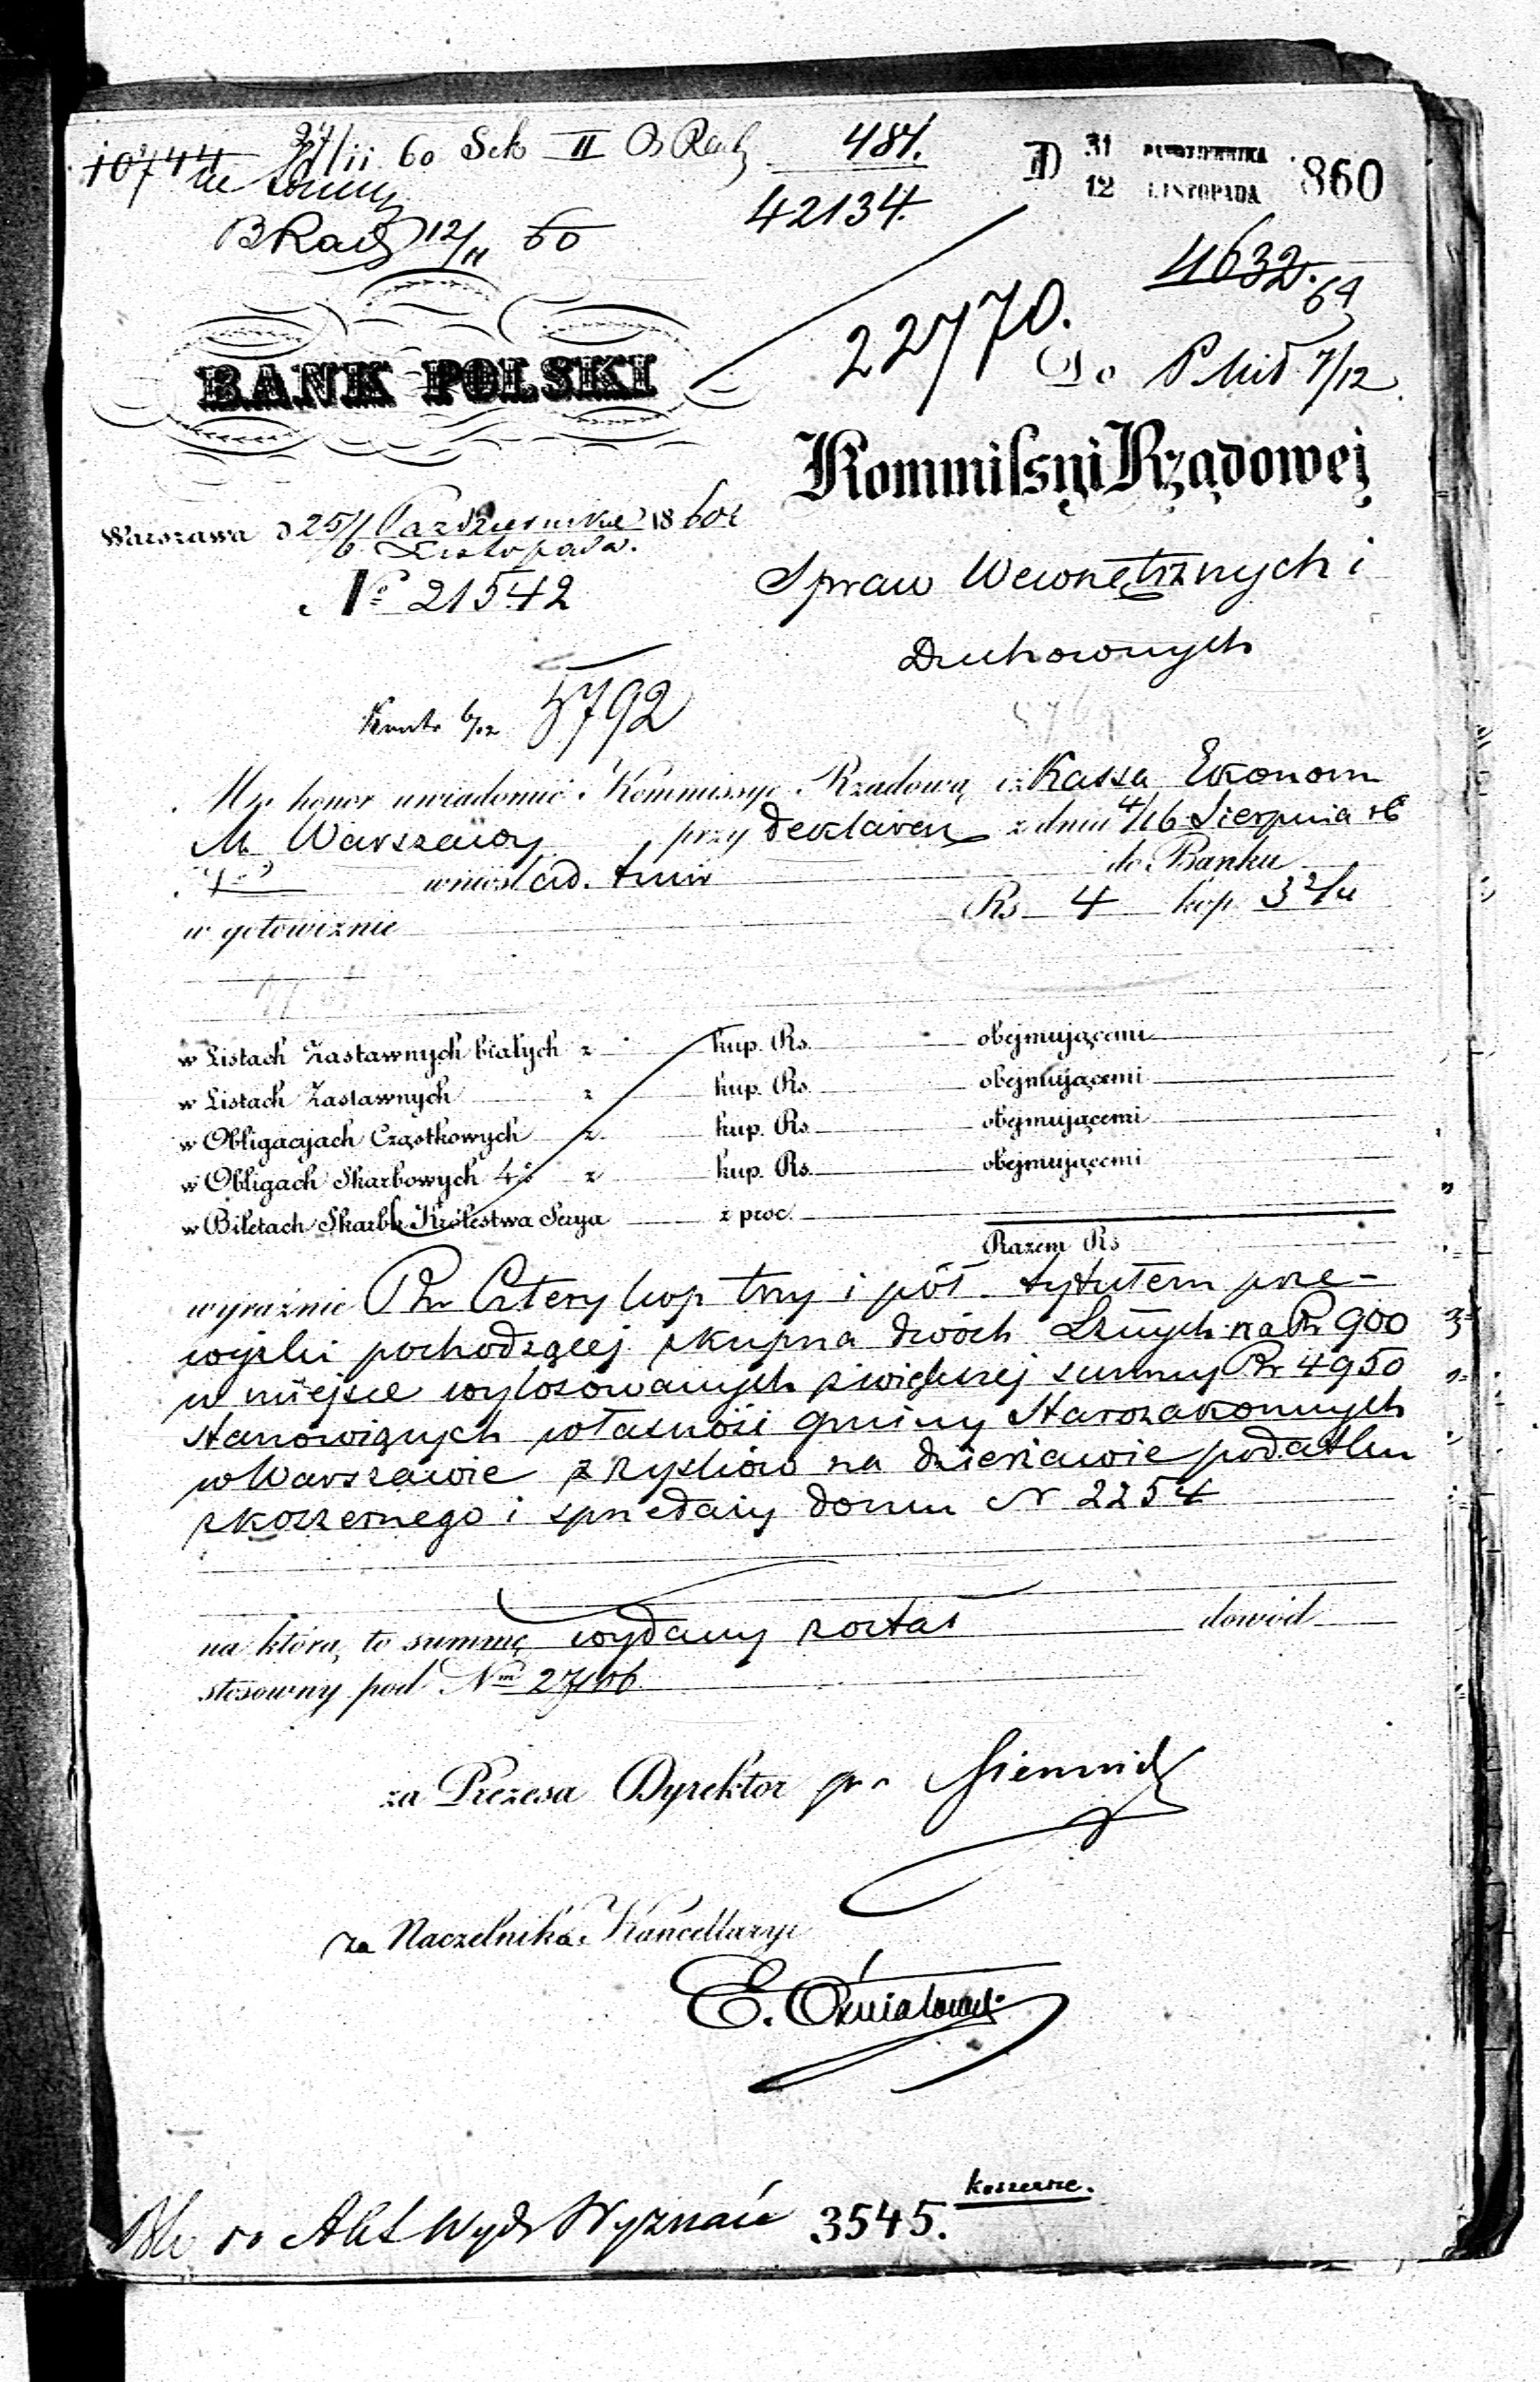 10744 27/11 60 Sek II 481.
42134.
D 31 PAŹDZIERNIKA
12 LISTOPADA 860
12/11 60
4632.
22770.
BANK POLSKI
Do 7/12
Kommissyi Rządowej
Warszawa d 25/6 Października 1860 r
Listopada.
№ 21542
Spraw Wewnętrznych i
Duchownych
6/12 5792
Ma honor uwiadomić Kommissyę Rządową iż Kassa Ekonom
M. Warszawy przy deklaracyi z dnia 4/16 Sierpnia rb
wniosła d. do Banku
w gotowiznie Rs 4 kop 3 2/4
w Listach Zastawnych białych z kup. Rs. obejmującemi
w Listach Zastawnych z kup. Rs. obejmującemi
w Obligacyjach Cząstkowych z kup. Rs. obejmującemi
w Obligach Skarbowych 4% z kup. Rs. obejmującemi
w Biletach Skarbu Królestwa Serya z proc.
Razem Rs
wyraźnie Rs. Cztery kop trzy i pół tytułem prze-
wyżki pochodzącej z kupna dwóch L. Znych na Rs 900
w miejsce wylosowanych z większej summy Rs 4950
stanowiących własność gminy Starozakonnych
w Warszawie z zysków na dzierżawie podatku
koszernego i sprzedaży domu N 2254
na którą to summę wydany został dowód
stosowny pod Nm 27106
za Prezesa Dyrektor
za Naczelnika Kancellaryi
E.
do Akt Wydz Wyznań 3545. koszerne.